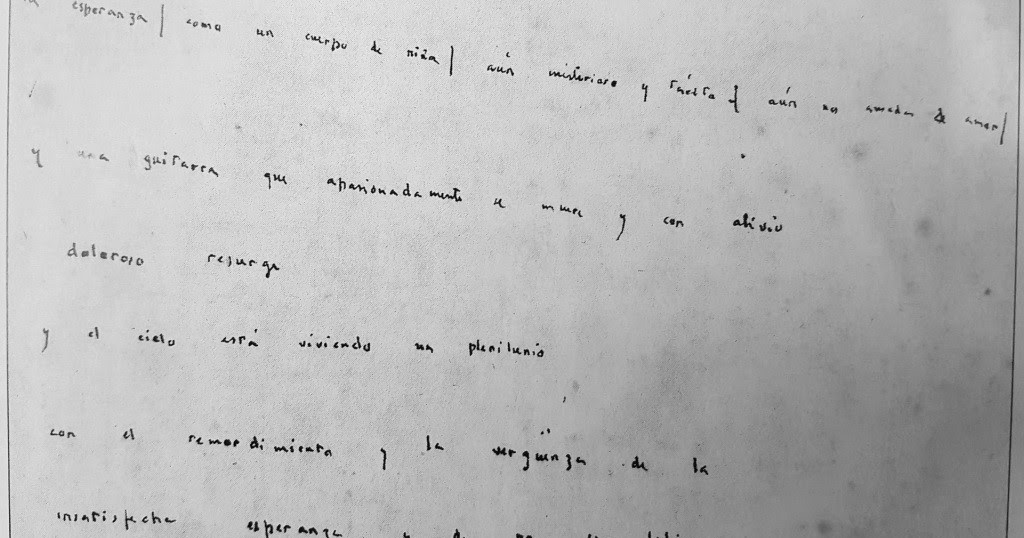 la esperanza | como un cuerpo de niña | aún misterioso y tácito { aún no amada de amor |
y una guitarra que apasionadamente se muere y con alivio
doloroso resurge
y el cielo está viviendo un plenilunio
con el remordimiento y la vergüenza de la
insatisfecha esperanza y de no ser